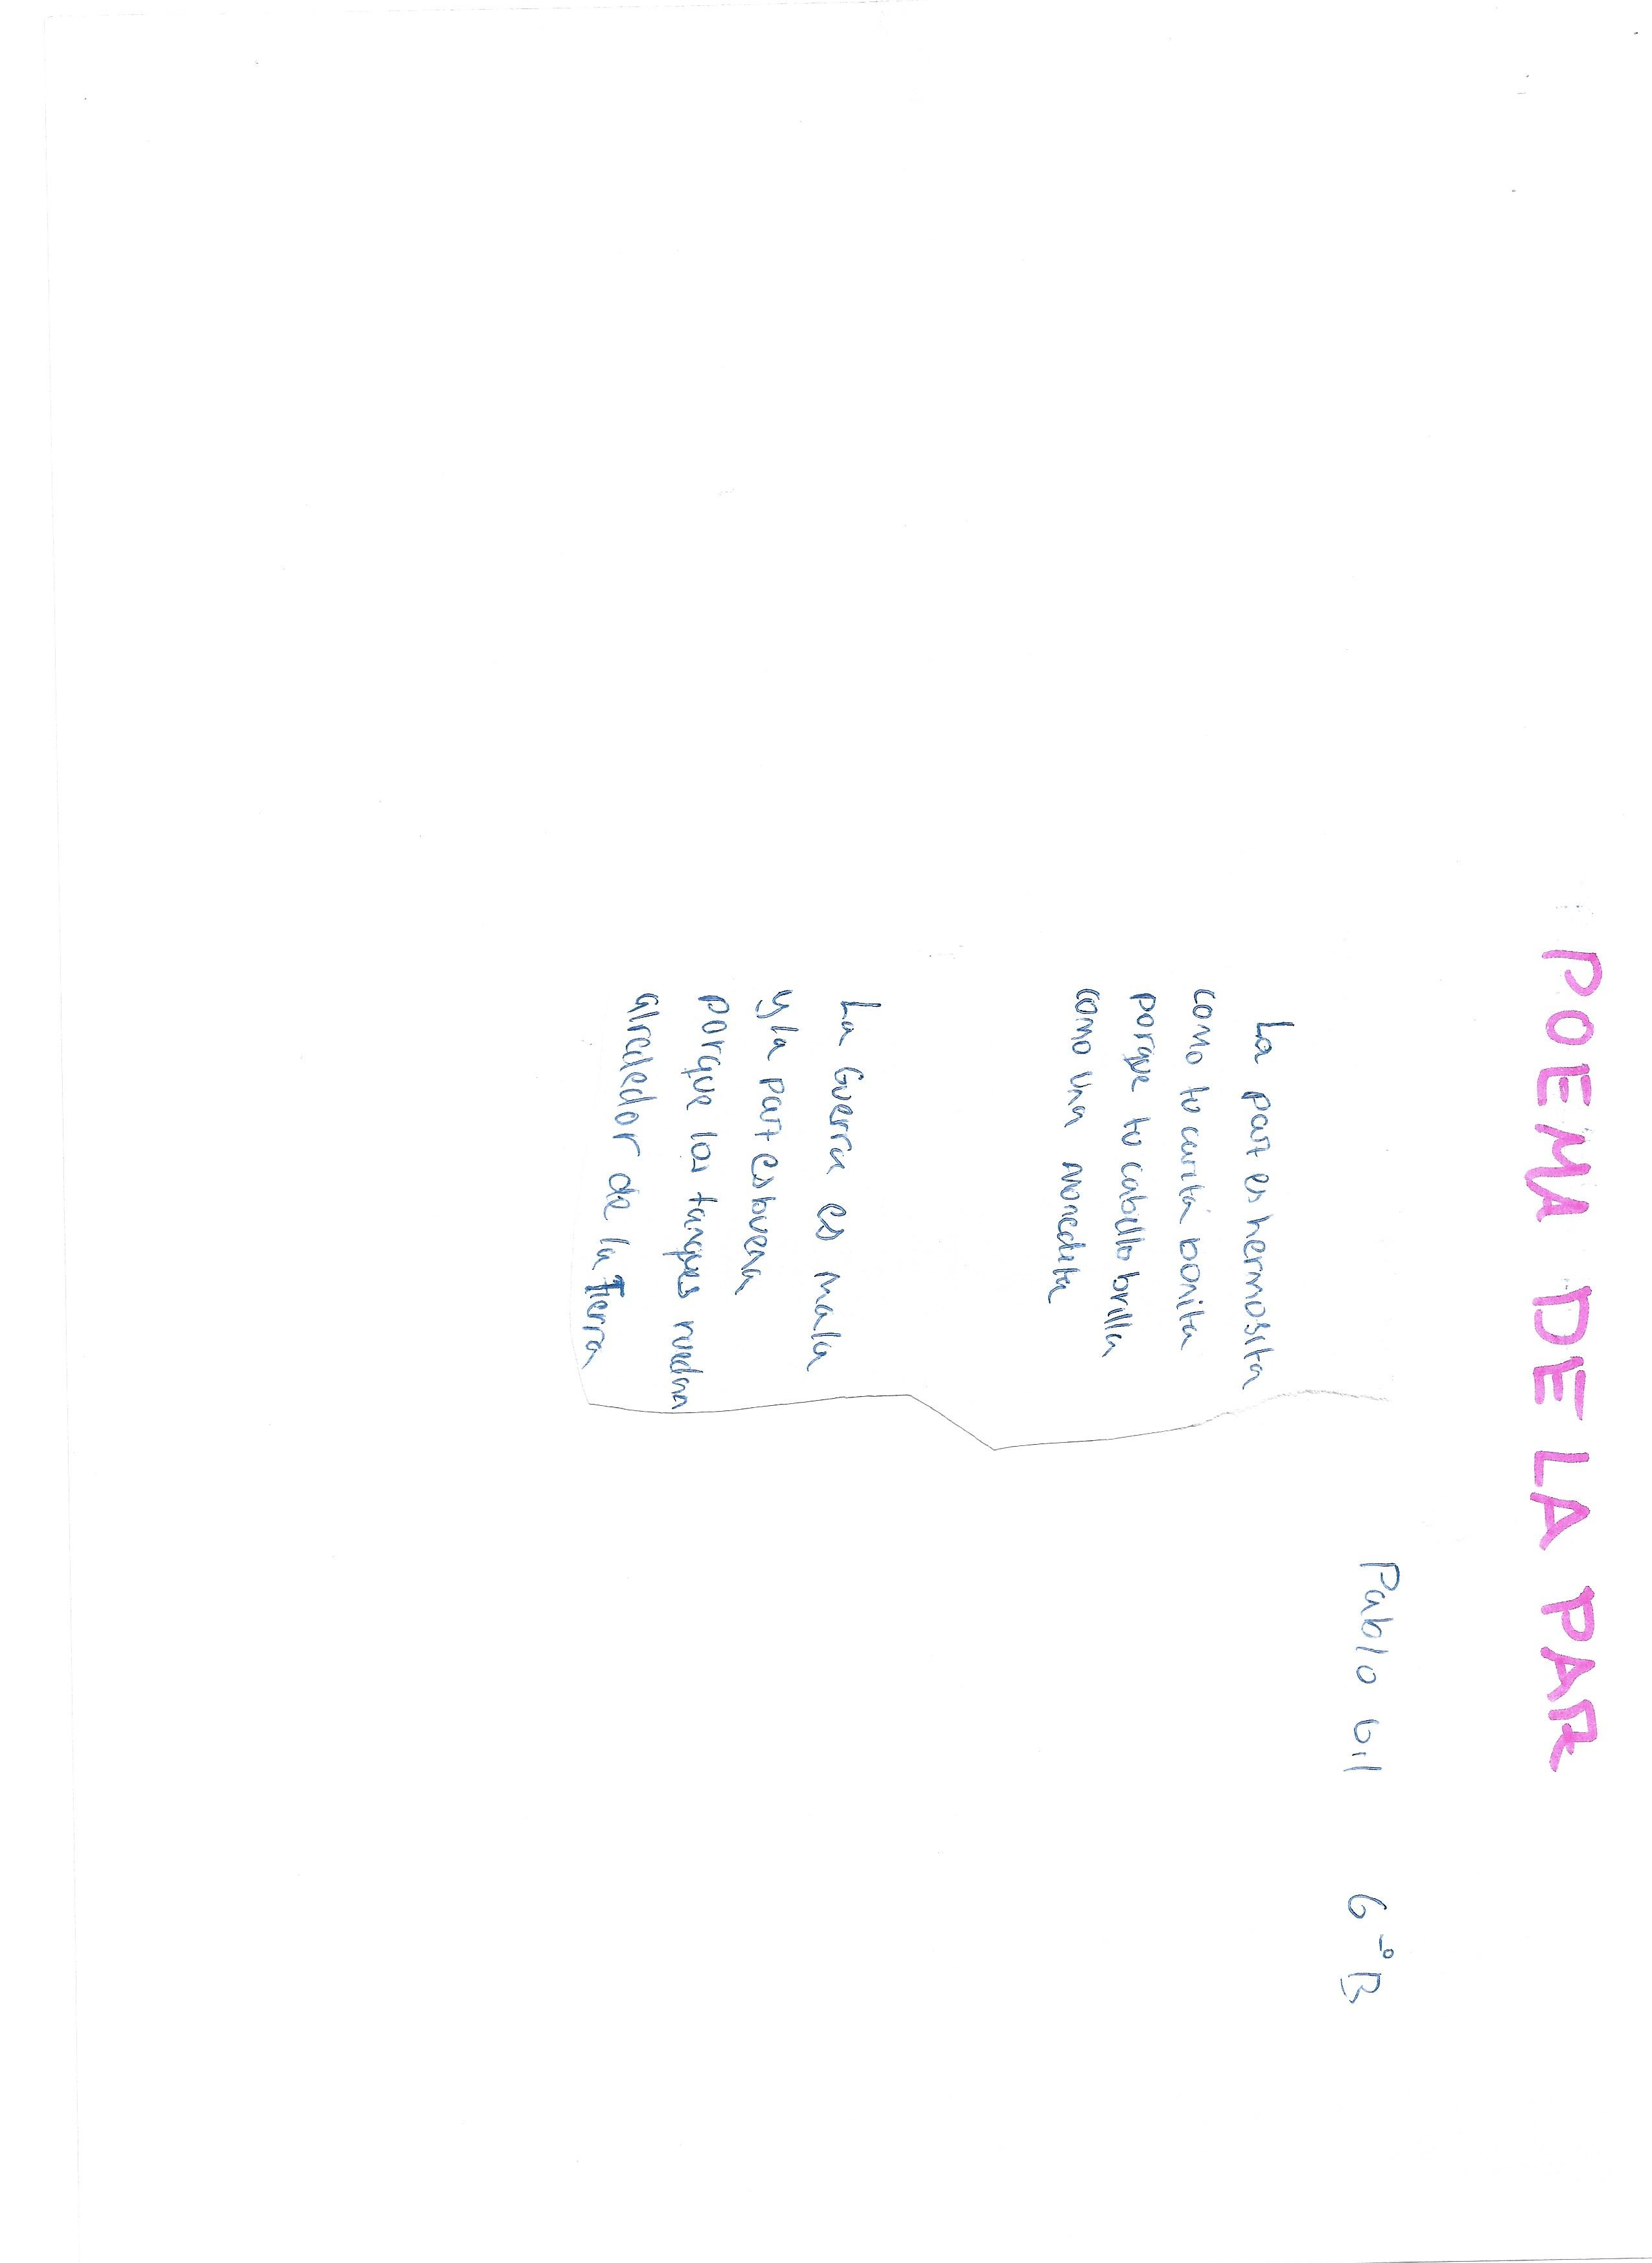 POEMA DE LA PAR
Pablo Gil 6º B
La paz es hermosita
como tu carita bonita
porque tu cabello brilla
como una monedita
La Guerra es mala
y la paz es buena
porque los tanques ruedan
alrededor de la Tierra